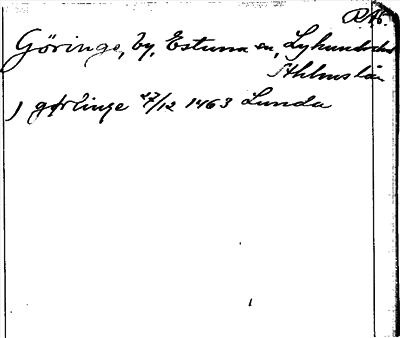 RAB.
Göringe, by, Estuna sn, Lyhundra hd
Sthlms län
J gørlinge 27/12 1463 Lunda